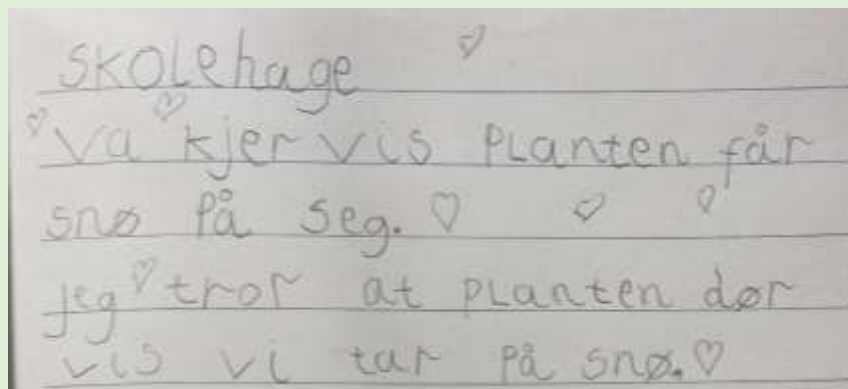 SKOLehage
va kjer vis PLanten får
snø På seg.
jeg tror at PLanten dør
vis vi tar på snø.